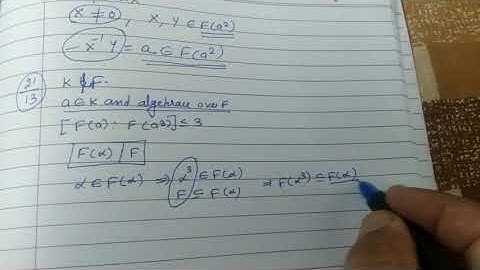 x ≠ 0, x, y ∈ F(α²)
-x⁻¹y = a ∈ F(α²)
21/13
K & F.
a ∈ K and algebraic over F
[F(a) : F(a³)] ≤ 3
F(α) | F
α ∈ F(α) ⇒ α³ ∈ F(α)
F ⊆ F(α)
⇒ F(α³) ⊆ F(α)